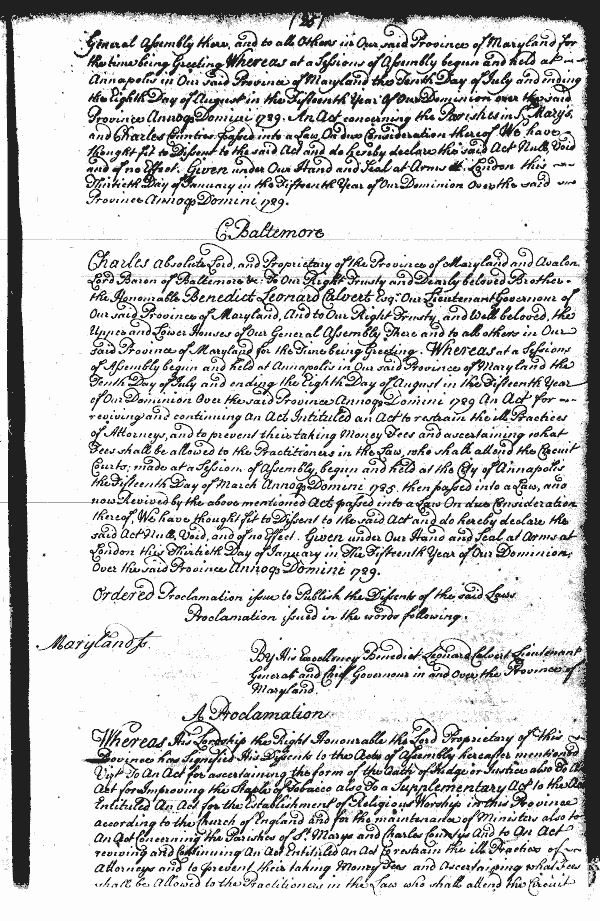 (25)
General Assembly there, and to all Others in Our said Province of Maryland for
the time being Greeting Whereas at a Sessions of Assembly begun and held at
Annapolis in Our said Province of Maryland the Tenth Day of July and ending
the Eighth Day of August in the Fifteenth Year of Our Dominion over the said
Province Annoq Domini 1729. An Act concerning the Parishes in St Mary's
and Charles Counties passed into a Law, On due Consideration thereof We have
thought fit to Dissent to the said Act and do hereby declare the said Act Null, Void
and of no Effect. Given under Our Hand and Seal at Arms at London this
Thirtieth Day of January in the Fifteenth Year of Our Dominion Over the said
Province Annoq Domini 1729.
C Baltemore
Charles absolute Lord, and Proprietary of the Province of Maryland and Avalon
Lord Baron of Baltemore &c. To Our Right Trusty and Dearly beloved Brother
the Honorable Benedict Leonard Calvert Esqr Our Lieutenant Governour of
Our said Province of Maryland, And to Our Right Trusty, and Well beloved, the
Upper and Lower Houses of Our General Assembly There and to all others in Our
said Province of Maryland for the Time being Greeting. Whereas at a Sessions
of Assembly begun and held at Annapolis in Our said Province of Maryland the
Tenth Day of July and ending the Eighth Day of August in the Fifteenth Year
of Our Dominion Over the said Province Annoq Domini 1729 An Act for
reviving and continuing An Act Intituled an Act to restrain the ill Practices
of Attorneys, and to prevent their taking Money Fees and ascertaining what
Fees shall be allowed to the Practitioners in the Law, who shall attend the Circuit
Courts; made at a Session of Assembly, begun and held at the City of Annapolis
the Fifteenth Day of March Annoq Domini 1725. then passed into a Law, and
now Revived by the above mentioned Act passed into a Law On due Consideration
thereof, We have thought fit to Dissent to the said Act and do hereby declare the
said Act Null, Void, and of no Effect. Given under Our Hand and Seal at Arms at
London this Thirtieth Day of January in The Fifteenth Year of Our Dominion,
Over the said Province Annoq Domini 1729.
Ordered Proclamation issue to Publish the Dissents of the said Laws
Proclamation issued in the words following.
Maryland ss.
By His Excellency Benedict Leonard Calvert Lieutenant
General and Chief Governour in and Over the Province of
Maryland.
A Proclamation
Whereas His Lordship the Right Honourable the Lord Proprietary of this
Province has Signified His Dissents to the Acts of Assembly hereafter mentioned
Vizt To An Act for ascertaining the form of the Oath of Judge or Justice also To
Act for Improving the Staple of Tobacco also To a Supplementary Act to the Act
Entituled An Act for the Establishment of Religious Worship in this Province
according to the Church of England and for the maintenance of Ministers also to
An Act Concerning the Parishes of St Marys and Charles Countys And to An Act
reviving and Continuing An Act Entituled An Act to restrain the ill Practices of
Attorneys and to prevent their taking Money Fees and Ascertaining what Fees
shall be Allowed to the Practitioners in the Law who shall attend the Circuit